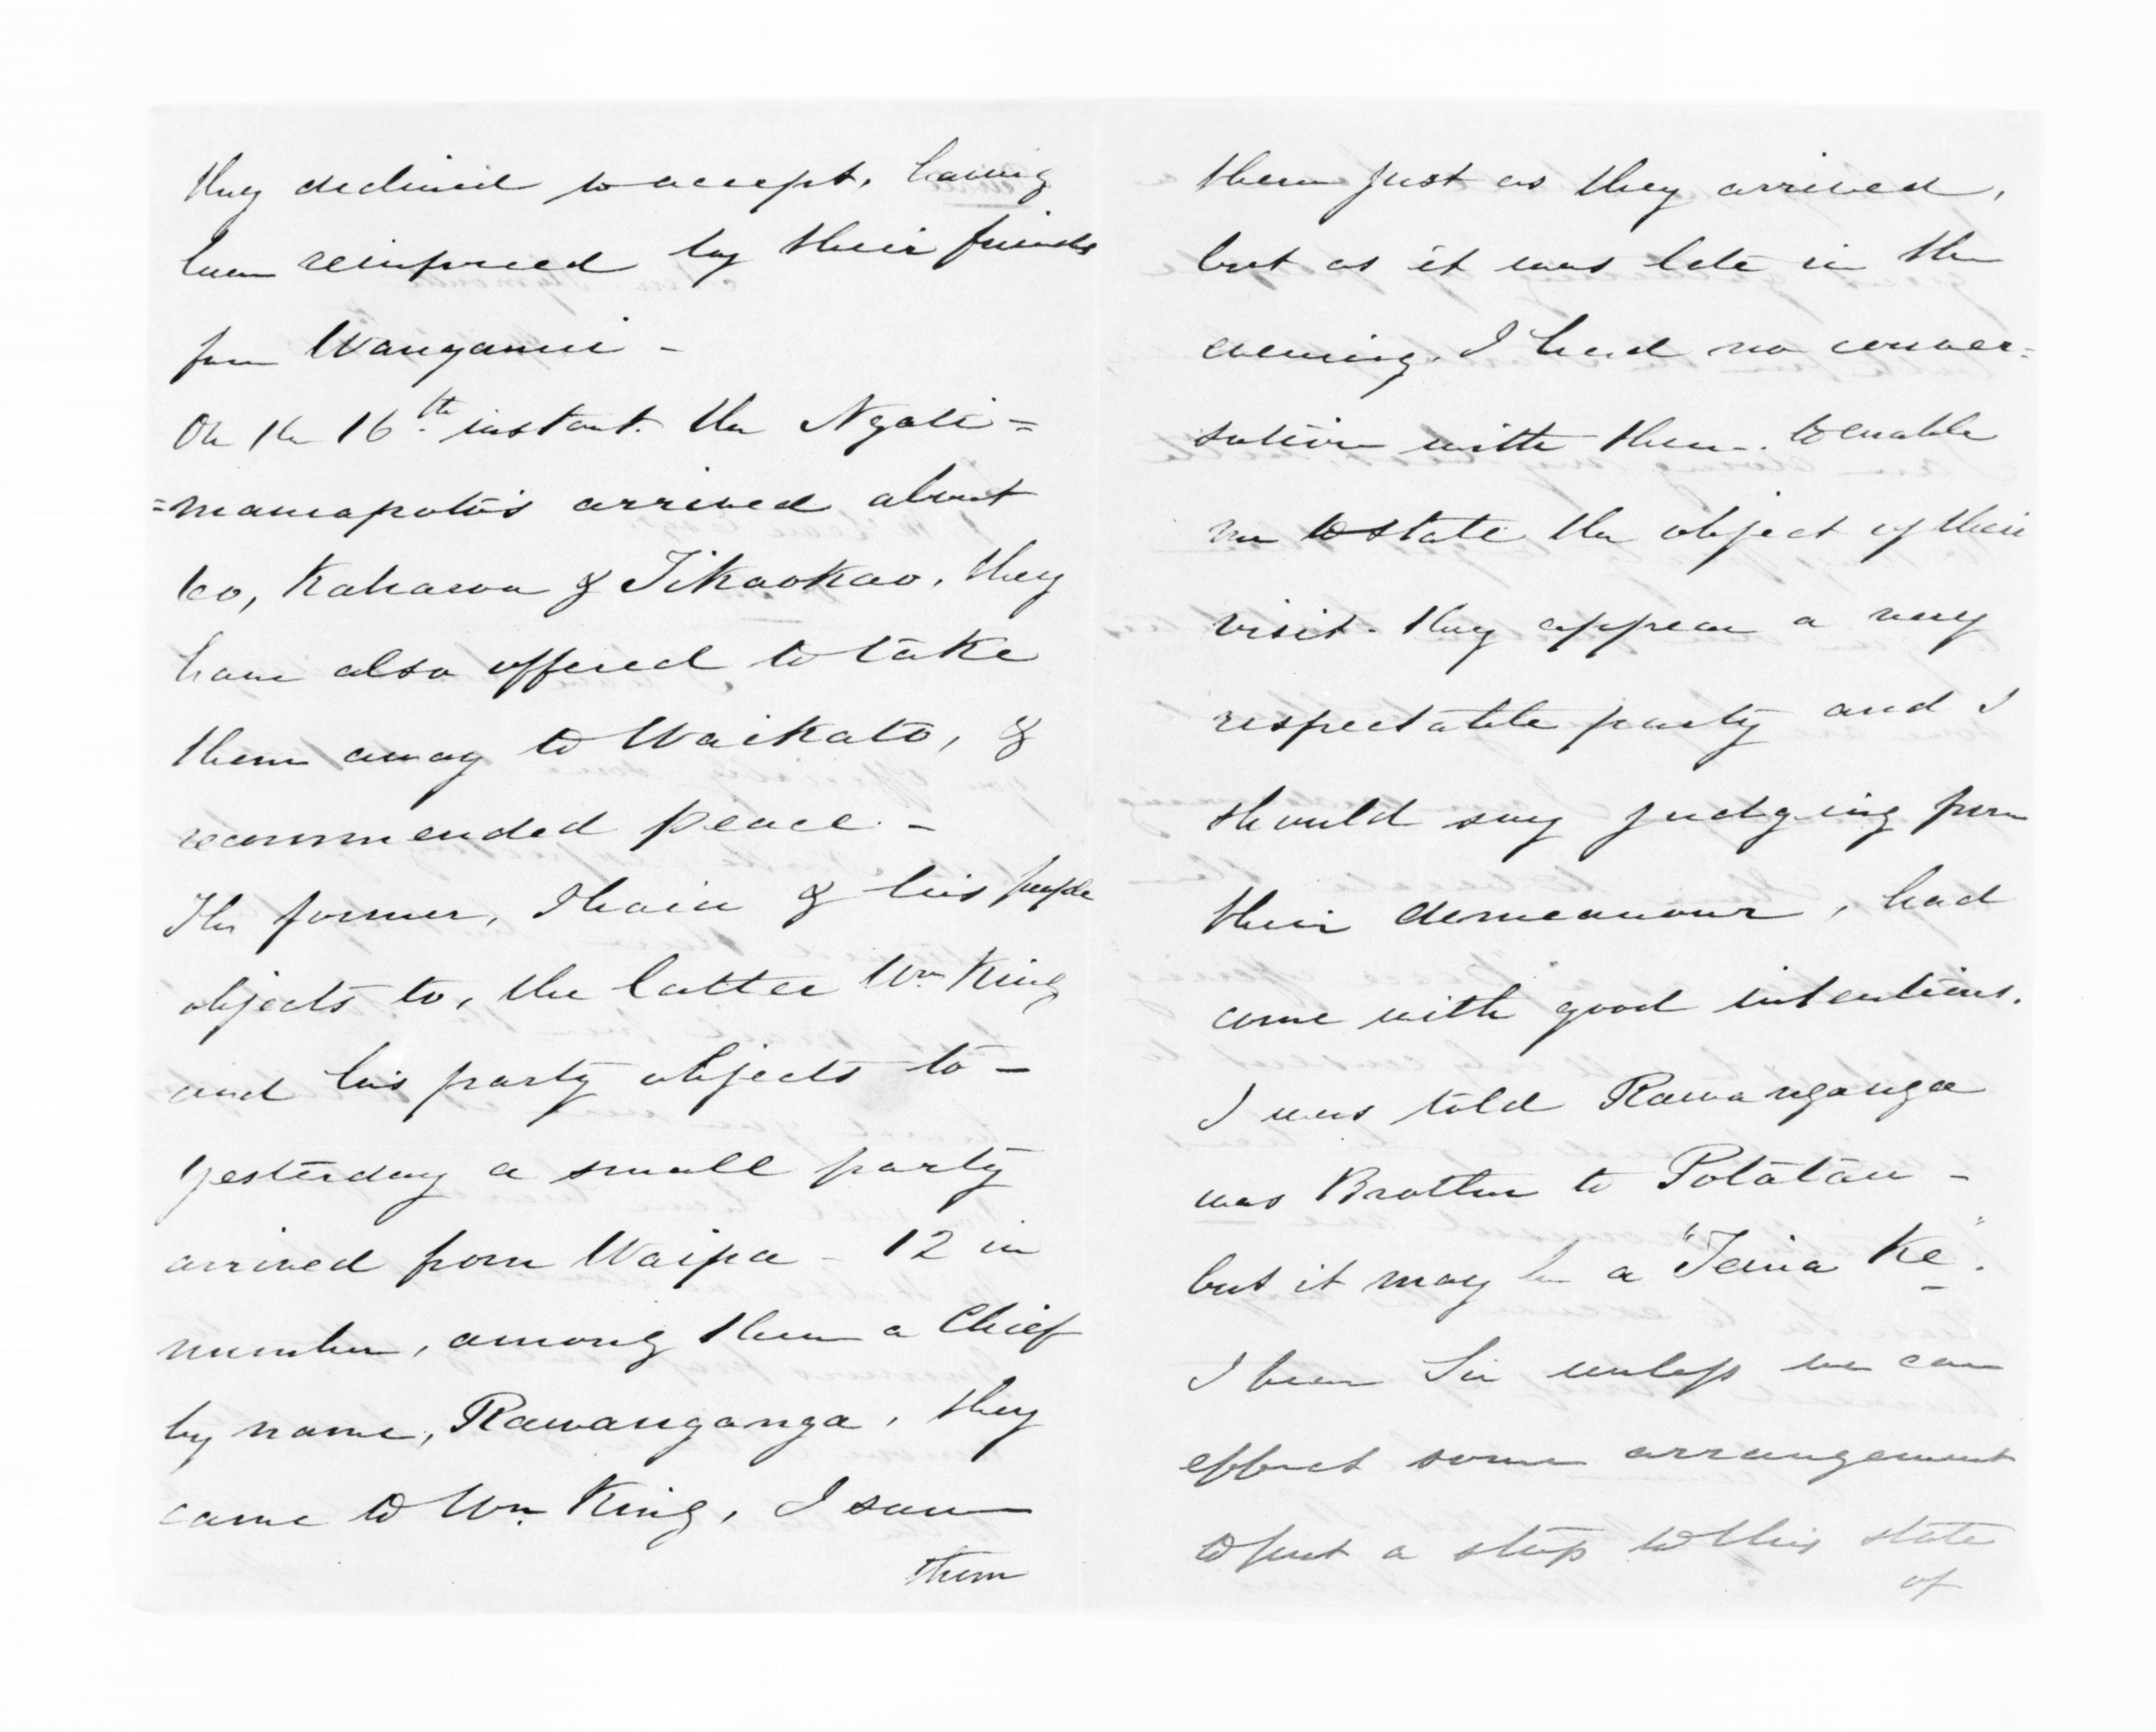 they declined to accept, having
been reinforced by their friends
from Wanganui -
On the 16th. instant. the Ngati=
=maniapoto's arrived about
60, Kaharoa & Tikaokao, they
have also offered to take
them away to Waikato, &
recommended peace. -
The former, Ihaia & his people
objects to, the latter Wm King
and his party objects to -
yesterday a small party
arrived from Waipa - 12 in
number, among them a Chief
by name, Rawanganga, they
came to Wm. King, I saw
them
them just as they arrived,
but as it was late in the
evening. I had no conver=
sation with them. to enable
me to state the object of their
visit. they appear a very
respectable party and I
should say judging from
their demeanour, had
come with good intentions.
I was told Rawanganga
was Brother to Potatau -
but it may be a "Teina Ke".
I fear Sir unless we can
effect some arrangement
to put a stop to this state
of